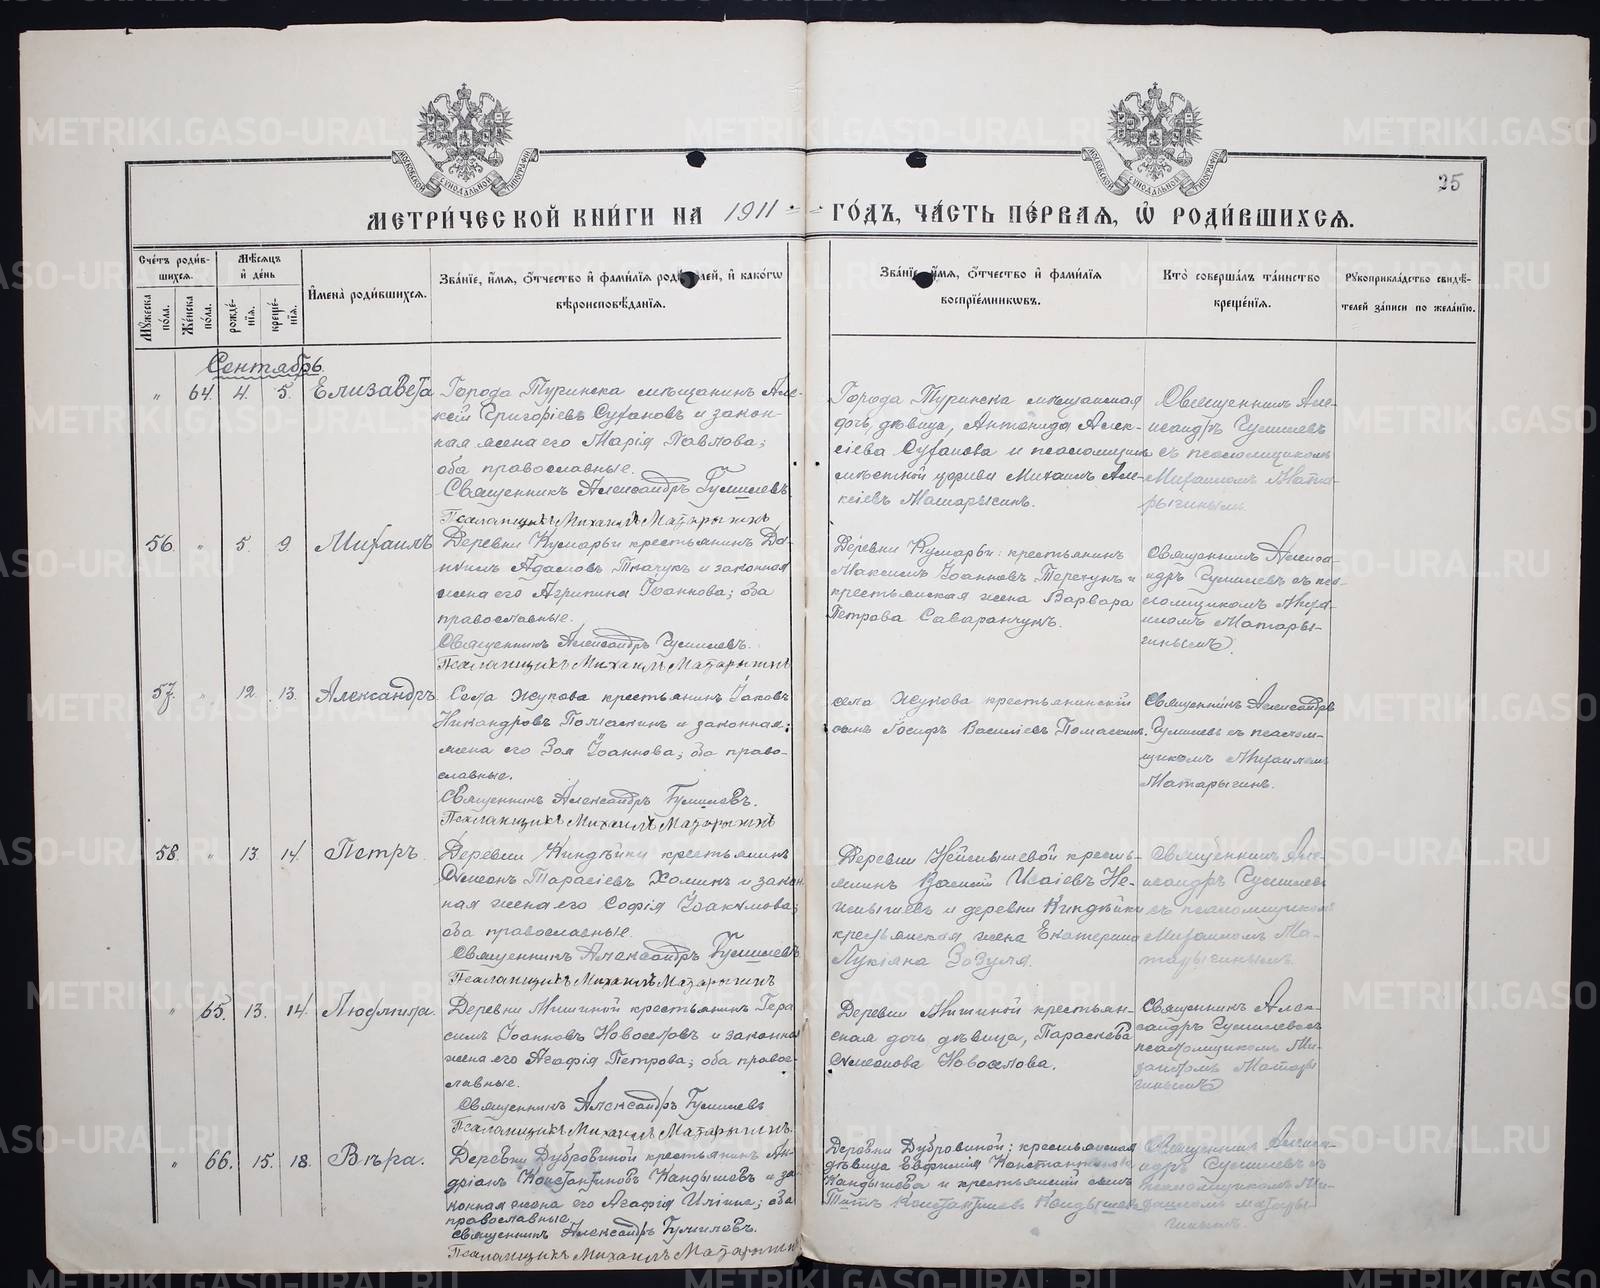 25
МЕТРИ́ЧЕСКОЙ КНИ́ГИ НА 1911 ГО́ДЪ, ЧА́СТЬ ПЕ́РВАЯ, Ѿ РОДИ́ВШИХСЯ.
Сче́тъ роди́в-
шихся.
Му́жеска по́ла.
Же́нска по́ла.
Мѣ́сяцъ
и де́нь
рожде́-
нія.
креще́-
нія.
Имена̀ роди́вшихся.
Зва́ніе, и́мя, о́тчество и фами́лія роди́телей, и како́гѡ
вѣроисповѣ́данія.
Зва́ніе, и́мя, о́тчество и фами́лія
воспріе́мниковъ.
Кто̀ соверша́лъ та́инство
креще́нія.
Рукоприкла́дство свидѣ́-
телей за́писи по жела́нію.
Сентябрь.
" 64. 4. 5. Елизавета
Города Туринска мѣщанинъ Але-
ксѣй Григоріевъ Сухановъ и закон-
ная жена его Марія Павлова;
оба православные.
Священникъ Александръ Гумилевъ
Псаломщикъ Михаилъ Матарыгинъ
Города Туринска мѣщанская
дочь, дѣвица, Антонида Алек-
сіева Суханова и псаломщикъ
мѣстной церкви Михаилъ Але-
ксіевъ Матарыгинъ.
Священникъ Але-
ксандръ Гумилевъ
съ псаломщикомъ
Михаиломъ Мата-
рыгинымъ.
56. " 5. 9. Михаилъ
Деревни Кумарьи крестьянинъ Да-
ніилъ Адамовъ Ткачукъ и законная
жена его Агрипина Іоаннова; оба
православные.
Священникъ Александръ Гумилевъ.
Псаломщикъ Михаилъ Матарыгинъ
Деревни Кумарьи: крестьянинъ
Максимъ Іоанновъ Терехунъ и
крестьянская жена Варвара
Петрова Саваранчукъ.
Священникъ Алекса-
ндръ Гумилевъ съ пса-
ломщикомъ Миха-
иломъ Матары-
гинымъ.
57. " 12. 13. Александръ
Села Жукова крестьянинъ Іаковъ
Никандровъ Помаскинъ и законная
жена его Зоя Іоаннова; оба право-
славные.
Священникъ Александръ Гумилевъ.
Псаломщикъ Михаилъ Матарыгинъ
села Жукова крестьянинскій
сынъ Іосифъ Василіевъ Помаскинъ.
Священникъ Александръ
Гумилевъ съ псалом-
щикомъ Михаиломъ
Матарыгинъ.
58. " 13. 14. Петръ.
Деревни Киндѣйки крестьянинъ
Симеонъ Тарасіевъ Хоминъ и закон-
ная жена его Софія Іоакимова;
оба православные.
Священникъ Александръ Гумилевъ
Псаломщикъ Михаилъ Матарыгинъ
Деревни Неймышевой кресть-
янинъ Василій Исаіевъ Не-
ймышевъ и деревни Киндѣйки
крестьянская жена Екатерина
Лукіяна Зозуля.
Священникъ Але-
ксандръ Гумилевъ
съ псаломщикомъ
Михаиломъ Ма-
тарыгинымъ.
" 65. 13. 14. Людмила.
Деревни Мишиной крестьянинъ Гера
симъ Іоанновъ Новоселовъ и законная
жена его Агафія Петрова; оба право-
славные.
Священникъ Александръ Гумилевъ
Псаломщикъ Михаилъ Матарыгинъ.
Деревни Мишиной крестьян-
ская дочь дѣвица, Параскева
Симеонова Новоселова.
Священникъ Алек-
сандръ Гумилевъ съ
псаломщикомъ Ми-
хаиломъ Матары
гинымъ
" 66. 15. 18. Вѣра.
Деревни Дубровиной крестьянинъ Ан-
дріанъ Константиновъ Кандышевъ и за-
конная жена его Агафія Иліина; оба
православные.
Священникъ Александръ Гумилевъ.
Псаломщикъ Михаилъ Матарыгинъ
Деревни Дубровиной; крестьянская
дѣвица Евфимія Константинова
Кандышева и крестьянскій сынъ
Титъ Константиновъ Кандышевъ
Священникъ Алекса-
ндръ Гумилевъ съ
псаломщикомъ Ми-
хаиломъ Матары-
гинымъ.
METRIKI.GASO-URAL.RU